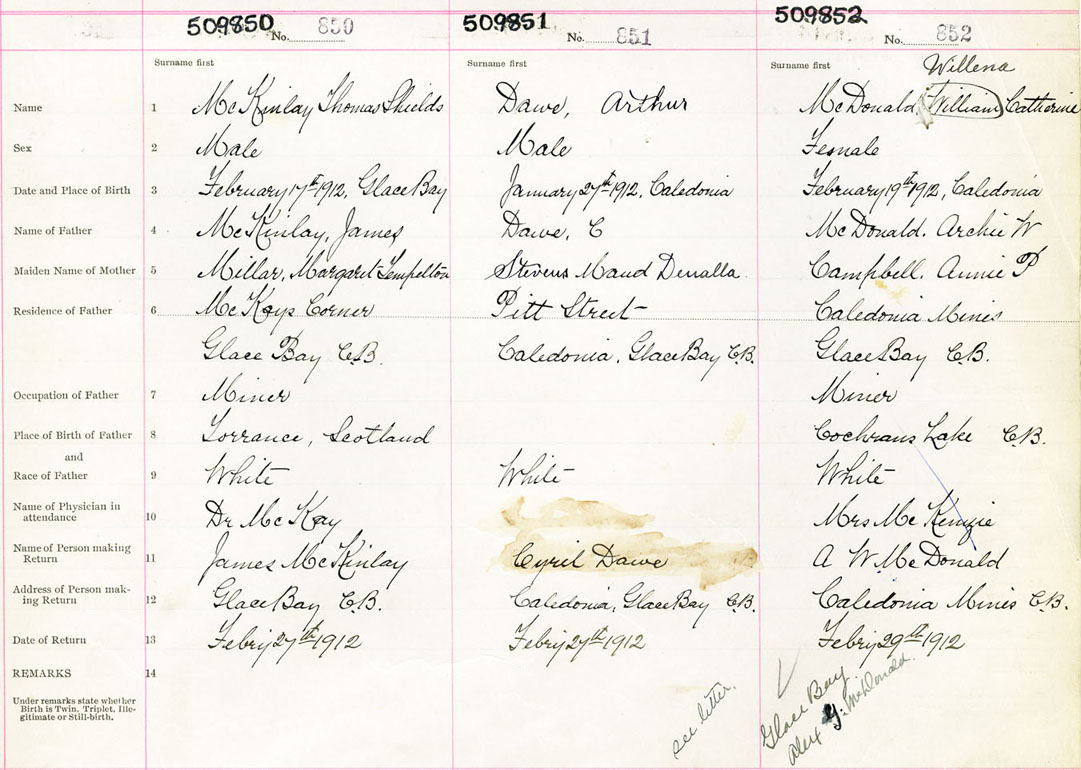 509850 No. 850 509851 No. 851 509852 No. 852
Surname first Surname first Surname first Willena
Name 1 McKinlay Thomas Shields Dawe, Arthur McDonald, William Catherine
Sex 2 Male Male Female
Date and Place of Birth 3 February 17th 1912, Glace Bay January 27th 1912, Caledonia February 19th 1912, Caledonia
Name of Father 4 McKinlay, James Dawe, C McDonald. Archie W
Maiden Name of Mother 5 Millar, Margaret Tempelton Stevens Maud Denalla McDonald Campbell, Annie P
Residence of Father 6 McKays Corner Pitt Street Caledonia Mines
Glace Bay C.B. Caledonia, Glace Bay C.B. Glace Bay C.B.
Occupation of Father 7 Miner Miner
Place of Birth of Father 8 Torrance, Scotland Cochrans Lake C.B.
and
Race of Father 9 White White White
Name of Physician in
attendance 10 Dr McKay Mrs McKenzie
Name of Person making
Return 11 James McKinlay Cyril Dawe A W McDonald
Address of Person mak-
ing Return 12 Glace Bay C.B. Caledonia, Glace Bay C.B. Caledonia Mines C.B.
Date of Return 13 Febry 27th 1912 Febry 27th 1912 Febry 29th 1912
REMARKS 14
Under remarks state whether
Birth is Twin, Triplet, Ille-
gitimate or Still-birth.
see letter.
Glace Bay
Alex McDonald.